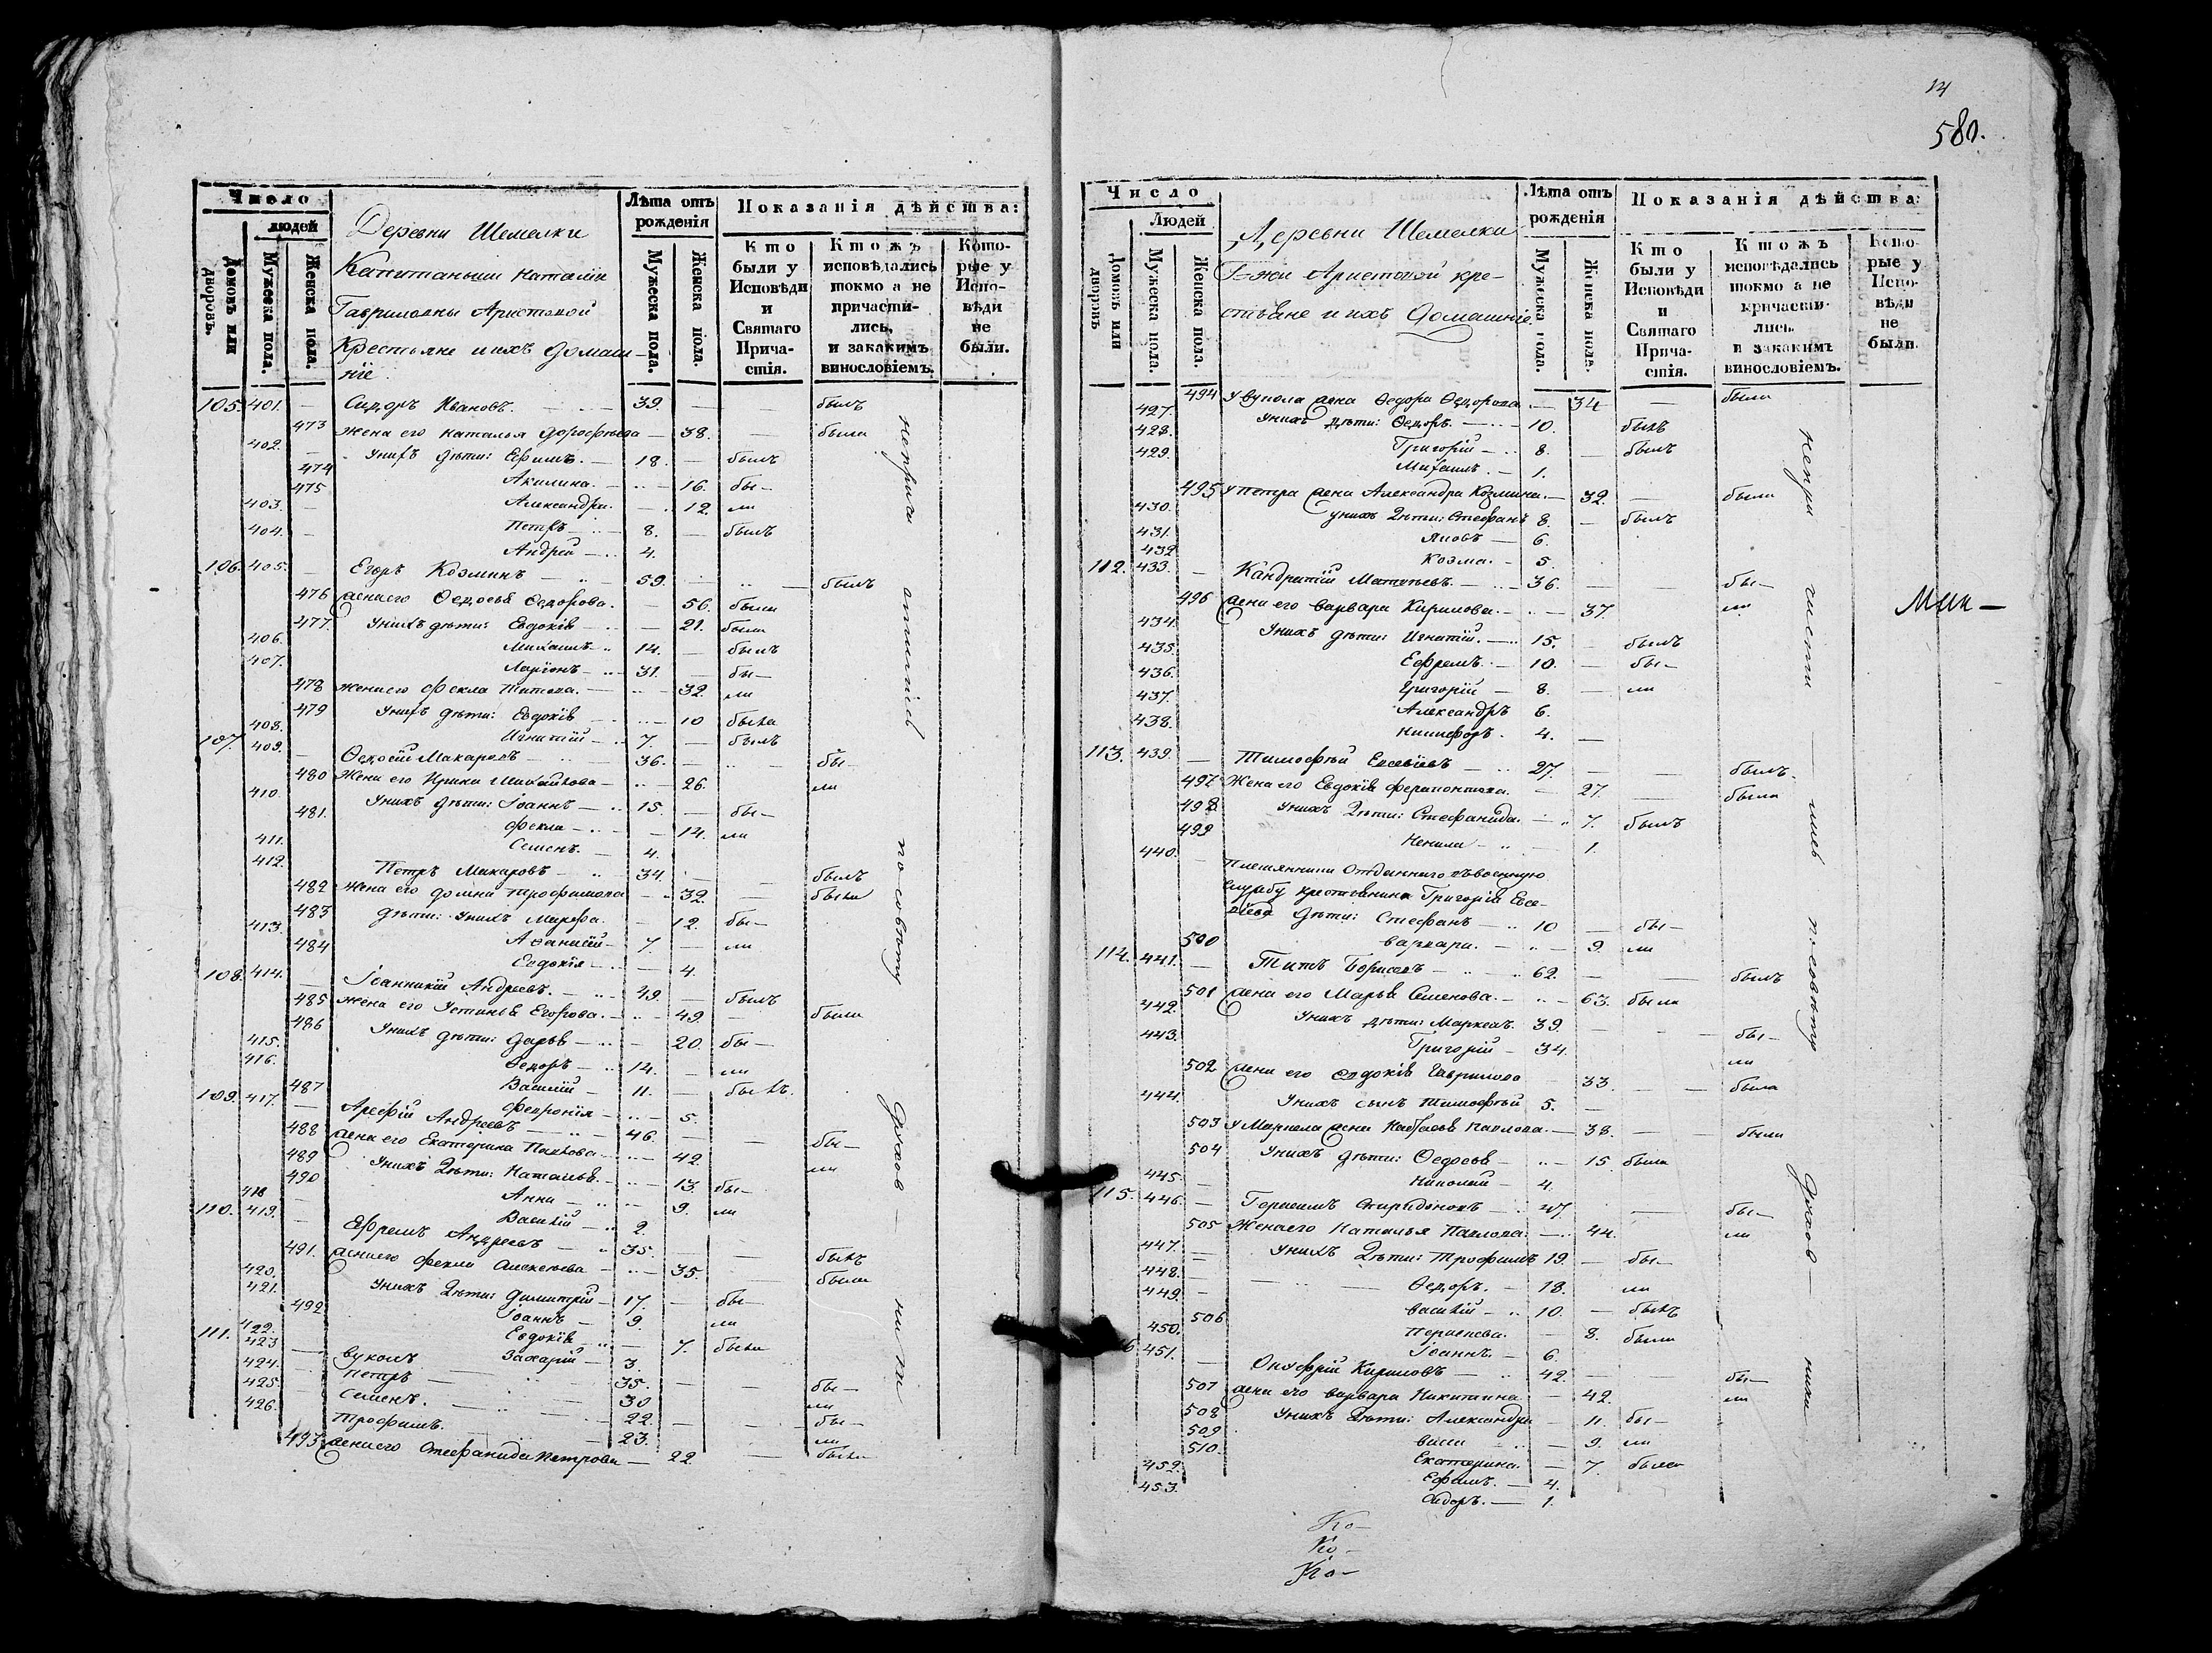 Число
людей
Домовъ или дворовъ.
Мужеска пола.
Женска пола.
Деревни Шемелки
Капитанши Наталіи
Гавриловны Аристовой
Крестьяне и ихъ домаш-
ніе.
Лѣта отъ рожденія
Мужеска пола.
Женска пола.
Показанія дѣйства:
Кто были у Исповѣди и Святаго Прича-стія.
Ктожъ исповѣдались токмо а не причасти-лись, и закакимъ винословіемъ.
Кото-рые у Испо-вѣди не были.
105. 401. — Сидоръ Ивановъ. — 39. — былъ
473 Жена его Наталья Дорофѣева — 38. — была
402. — Униҳъ дѣти: Ефимъ. — 18. — былъ
474 Акилина. — 16. бы-
475 Александра. — 12. ли
403. — Петръ — 8. — былъ
404. — Андрей — 4.
106. 405. — Егоръ Козминъ — 59. — былъ
476 Жена его Ѳедосья Ѳедорова. — 56. была
477. Унихъ дѣти: Евдокія — 21. была
406. Михаилъ — 14. — былъ
407. Ларіонъ — 31. бы-
478 Жена его Фекла Титова. — 32. ли
479 Унихъ дѣти: Евдокія — 10 была
408. Игнатій — 7. — былъ
107. 409. — Ѳедосій Макаровъ — 36. — бы-
480 Жена его Ирина Михайлова — 26. ли
410. Унихъ дѣти: Іоаннъ — 15. — бы-
481. Фекла — 14. ли
411. Семенъ. — 4.
412. Петръ Макаровъ — 34. — былъ
482 Жена его Домна Трофимова — 32. — была
483 дѣти: Унихъ Марфа. — 12. бы-
413. Аѳанасій — 7. — ли
484 Евдокія — 4.
108. 414. — Іоанникій Андреевъ. — 49. — былъ
485 Жена его Устинья Егорова. — 49. — была
486 Унихъ дѣти: Дарья — 20. бы-
415. Ѳедоръ — 14. — ли
416. Василій — 11. — былъ.
487 Февронія — 5.
109. 417. — Арефій Андреевъ — 46. — бы-
488 Жена его Екатерина Павлова — 42. ли
489 Унихъ дѣти: Наталья. — 13. бы-
490 Анна — 9. ли
418 Василій — 2.
110. 419. — Ефремъ Андреевъ — 35. — былъ
491. Жена его Фекла Алексѣева — 35. была
420. Унихъ дѣти: Димитрій — 17. — бы-
421. Іоаннъ — 9. ли
492 Евдокія — 7. была
422. Захарій — 3.
111. 423 — Вуколъ — 35. — бы-
424. Петръ — 30 ли
425. Семенъ. — 22. — бы-
426. Трофимъ. — 23. ли
493 Жена его Стефанида Петрова — 22. — была
по совѣту духов-
14
580.
Число
Людей
Домовъ или дворовъ
Мужеска пола.
Женска пола.
Деревни Шемелки
Г-жи Аристовой кре-
стьяне и ихъ домашніе.
Лѣта отъ рожденія
Мужеска пола.
Женска пола.
Показанія дѣйства:
Кто были у Исповѣди и Святаго Прича-стія.
Ктожъ исповѣдались токмо а не причасти-лись. и закакимъ винословіемъ.
Кото-рые у Испо-вѣди не были.
494 У Вукола жена Ѳедора Ѳедорова — 34 — была
427. Унихъ дѣти: Ѳедоръ. — 10. былъ
428. Григорій — 8. — былъ
429. Михаилъ. — 1.
495 У Петра жена Александра Козмина. — 32. — была
430. унихъ дѣти: Стефанъ 8. — былъ
431. Яковъ — 6.
432 Козма. — 5.
112. 433. — Кандратій Матвѣевъ. — 36. — бы-
496 Жена его Варвара Кирилова. — 37. ли
434. Унихъ дѣти: Игнатій. — 15. — былъ
435. Ефремъ. — 10. — бы-
436. Григорій — 8. — ли
437. Александръ 6.
438. Никифоръ. 4. —
113. 439. — Тимофѣй Евсевіевъ — 27. — былъ.
497 Жена его Евдокія Ферапонтова. — 27. — была
498 Унихъ дѣти: Стефанида. — 7. былъ
499 Ненила — 1.
440. — Племянники отданнаго въ военную
службу крестьянина Григорія Евсе-
віева дѣти: Стефанъ — 10 — бы-
500 Варвара. — 9. ли
114. 441. — Титъ Борисовъ — 62. — былъ
501 Жена его Марья Семенова. — 63. была
442. Унихъ дѣти: Маркелъ. 39. — бы-
443. Григорій — 34. ли
502 Жена его Евдокія Гаврилова 33. — была
444. Унихъ сынъ Тимофѣй 5. —
503 У Маркела жена Настасья Павлова. — 38. — была
504 Унихъ дѣти: Ѳедосья — 15. была
445. — Николай — 4.
115. 446. — Герасимъ Спиридоновъ — 47. — бы-
505 Жена его Наталья Павлова. — 44. ли
447. — Унихъ дѣти: Трофимъ 19. — бы-
448. — Ѳедоръ. — 18. ли
449. — Василій — 10. — былъ
506 Парасковья. — 8. была
450. Іоаннъ. — 6.
6 451. — Онуфрій Кириловъ — 42. — бы-
507 Жена его Варвара Никитина — 42. ли
508 Унихъ дѣти: Александра — 11. бы-
509 — 9. ли
510. Екатерина. — 7. была
452. Ефимъ. — 4.
453. Сидоръ. — 1.
по совѣту духов-
Ко-
Ко-
Ко-